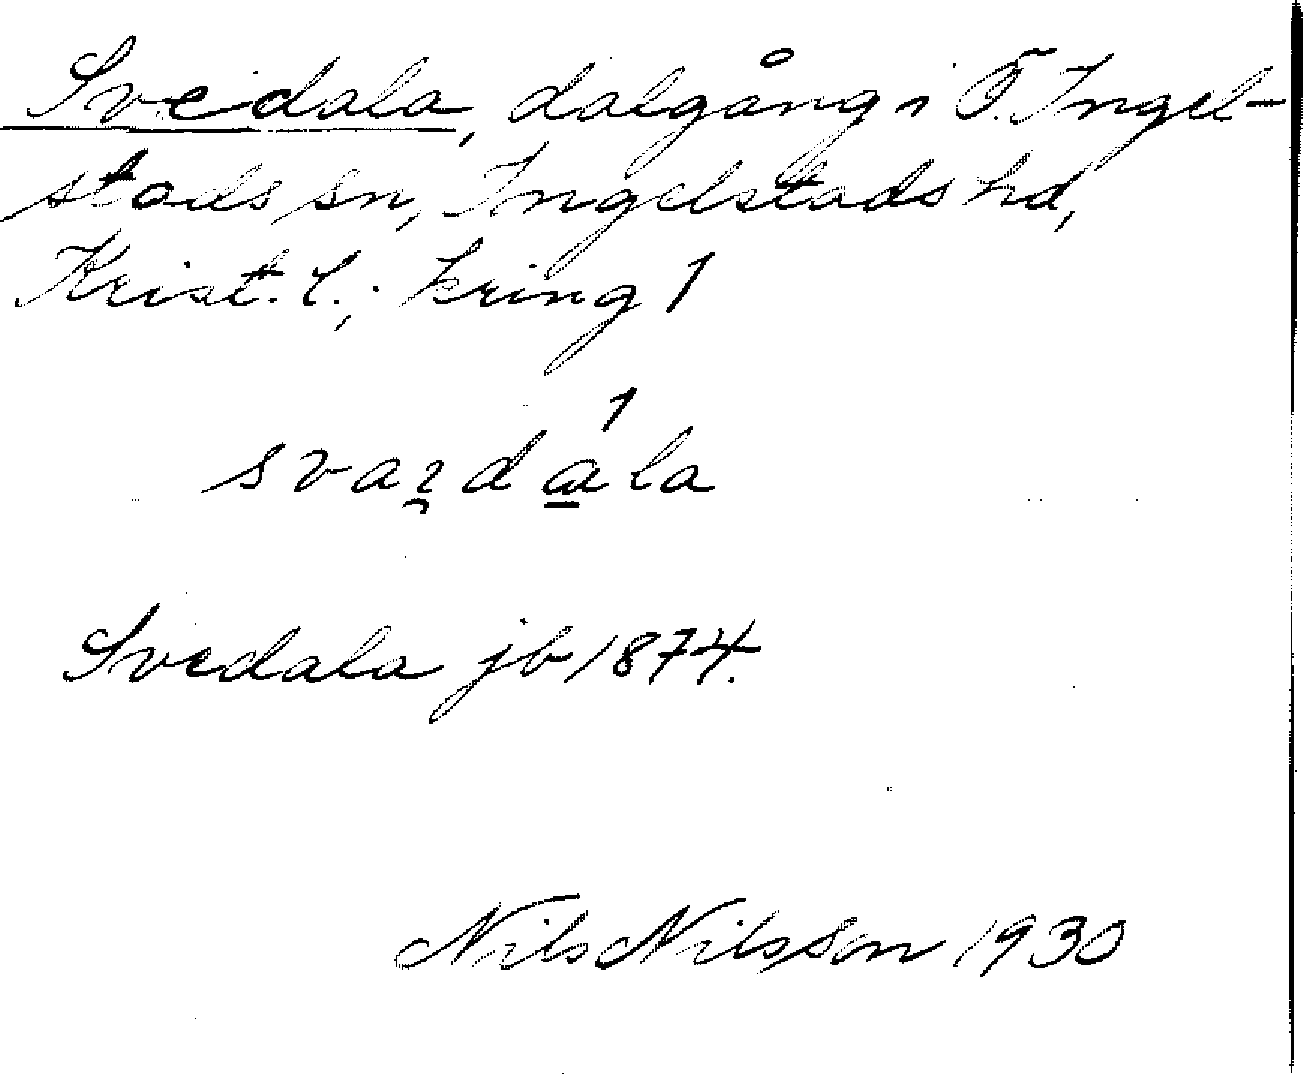 Svedala, dalgång i Ö. Ingel-
stads sn, Ingelstads hd,
Krist. l.; kring 1
Svedala jb 1874.
Nils Nilsson 1930